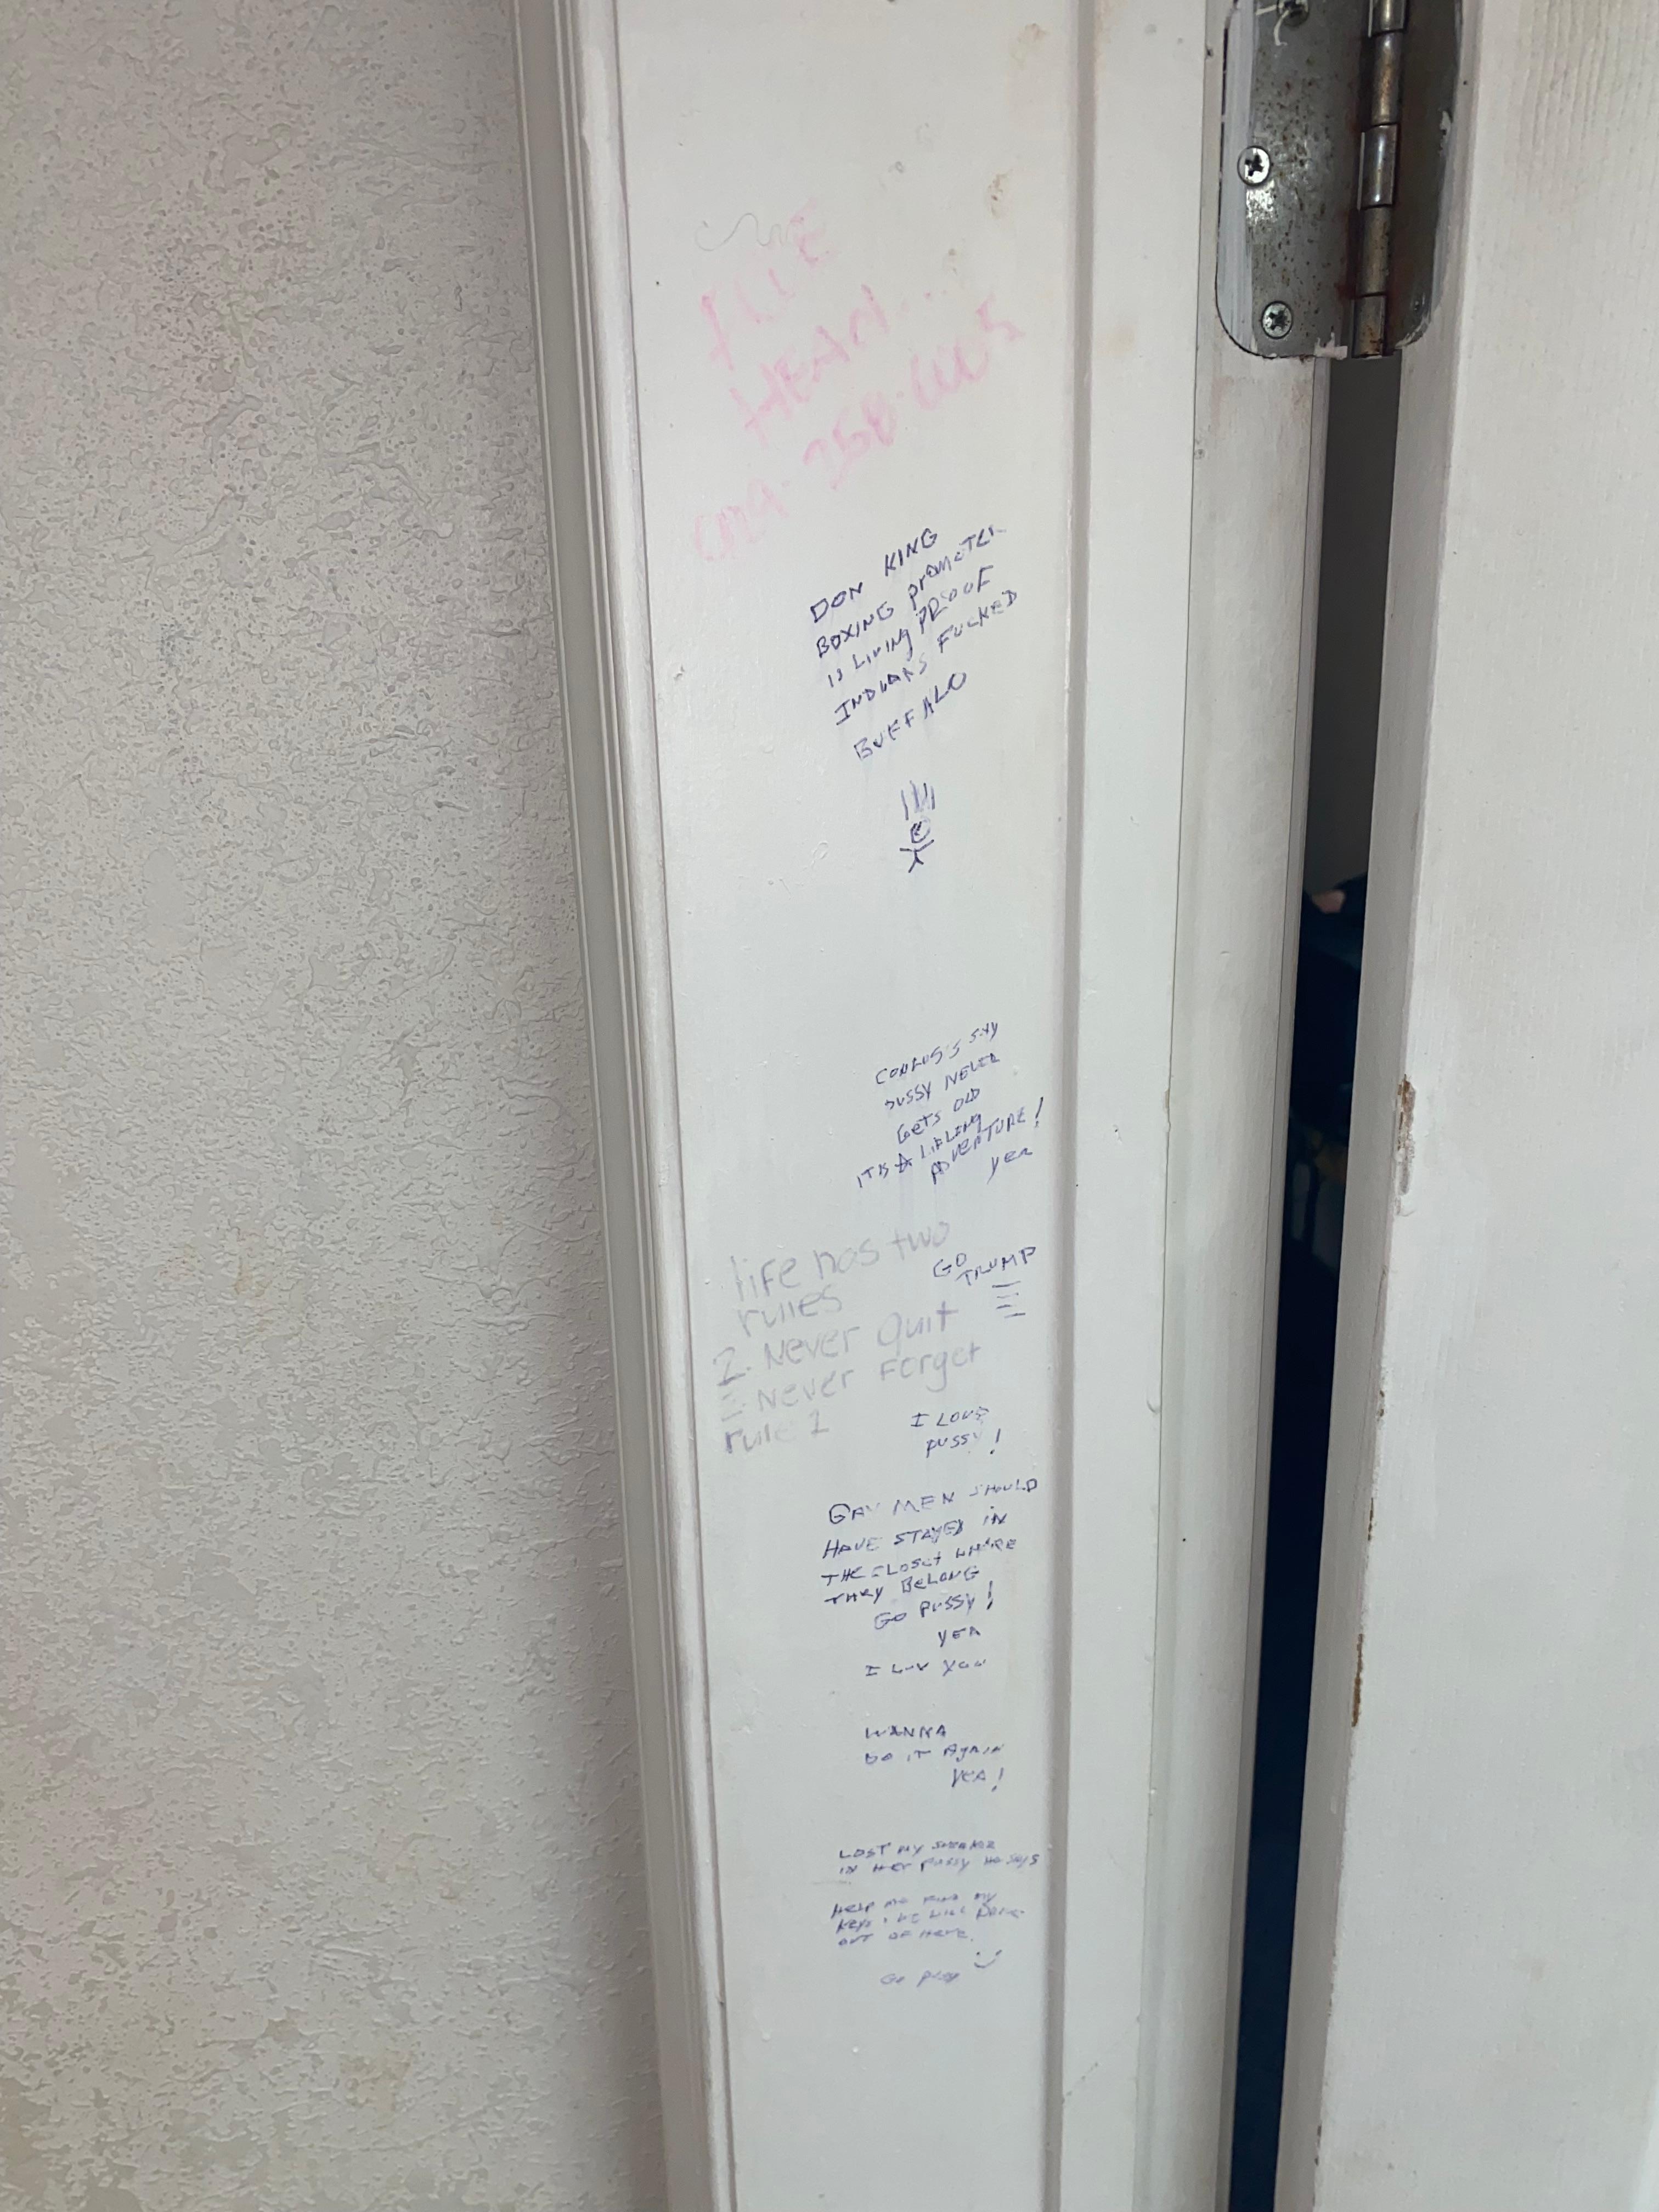 HEAN
DON KING
BOXING PROMOTER
IS LIVING PROOF
INDIANS FUCKED
BUFFALO
SAY
PUSSY NEVER
GETS OLD
ITS A
ADVENTURE!
YEA
life has two
rules
GO
TRUMP
2. Never Quit
Never Forget
rule 1
I LOVE
PUSSY!
GAY MEN SHOULD
HAVE STAYED IN
THE CLOSET WHERE
THEY BELONG
GO PUSSY!
YEA
I LUV YOU
WANNA
DO IT AGAIN
YEA!
LOST MY
IN HER PUSSY HE SAYS
HELP ME FIND MY
KEYS & WE WILL DRIVE
OUT OF HERE.
GO